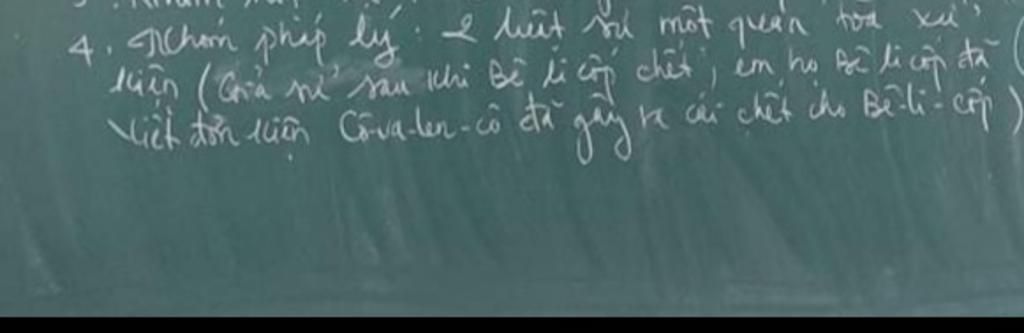 4. Nhóm pháp lý: 2 luật sư một quan tòa xử
kiện (Giả sử sau khi Bê li cốp chết, em họ Bê li cốp đã
viết đơn kiện Cô-va-len-cô đã gây ra cái chết cho Bê-li-cốp)